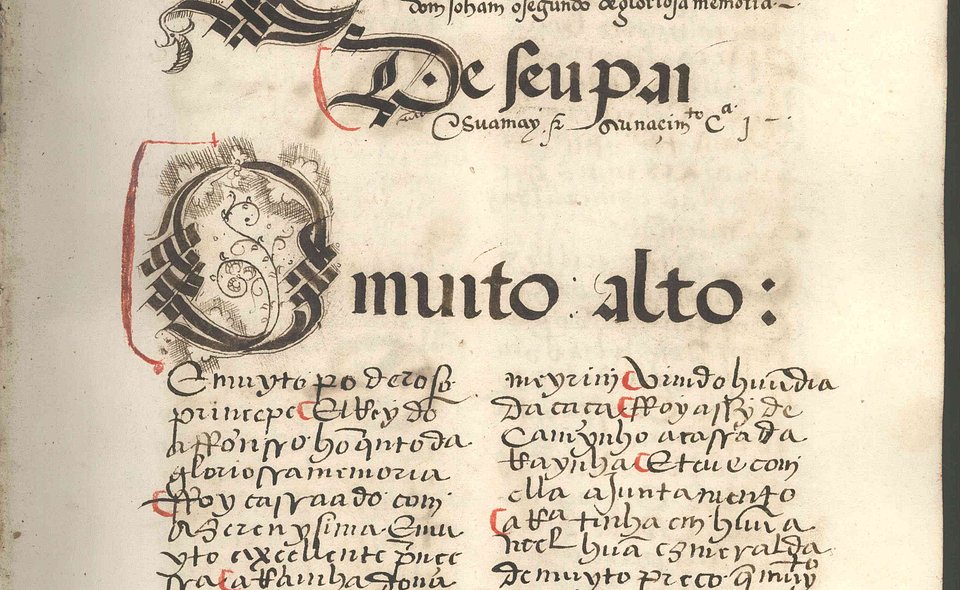 dom Joham o segundo de gloriosa memoria.
De seu pai
E sua may. E seu naçimto Ca j
O muito alto:
E muyto poderoso
principe El Rey do
affonsso ho qnto da
gloriossa memoria
ffoy cassaado com
a Serenysima E mu
yto excellente prince
ssa a Rainha dona
meyrinj Vimdo huũ dia
da caca ffoy assy de
Camynho a cassa da
Raynha E teue com
ella ajuntamento
a Rainha tinha em huũ a
neel huũa esmeralda
de muyto preço q̃ muyto